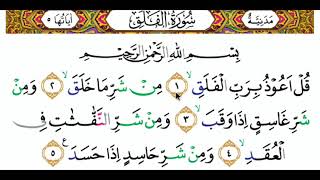 مدنية سورة الفلق آياتها ٥
بِسْمِ اللّٰهِ الرَّحْمٰنِ الرَّحِيْمِ
قُلْ اَعُوْذُ بِرَبِّ الْفَلَقِ ۙ ١ مِنْ شَرِّ مَا خَلَقَ ۙ ٢ وَمِنْ
شَرِّ غَاسِقٍ اِذَا وَقَبَ ۙ ٣ وَمِنْ شَرِّ النَّفّٰثٰتِ فِى
الْعُقَدِ ۙ ٤ وَمِنْ شَرِّ حَاسِدٍ اِذَا حَسَدَ ࣖ ٥